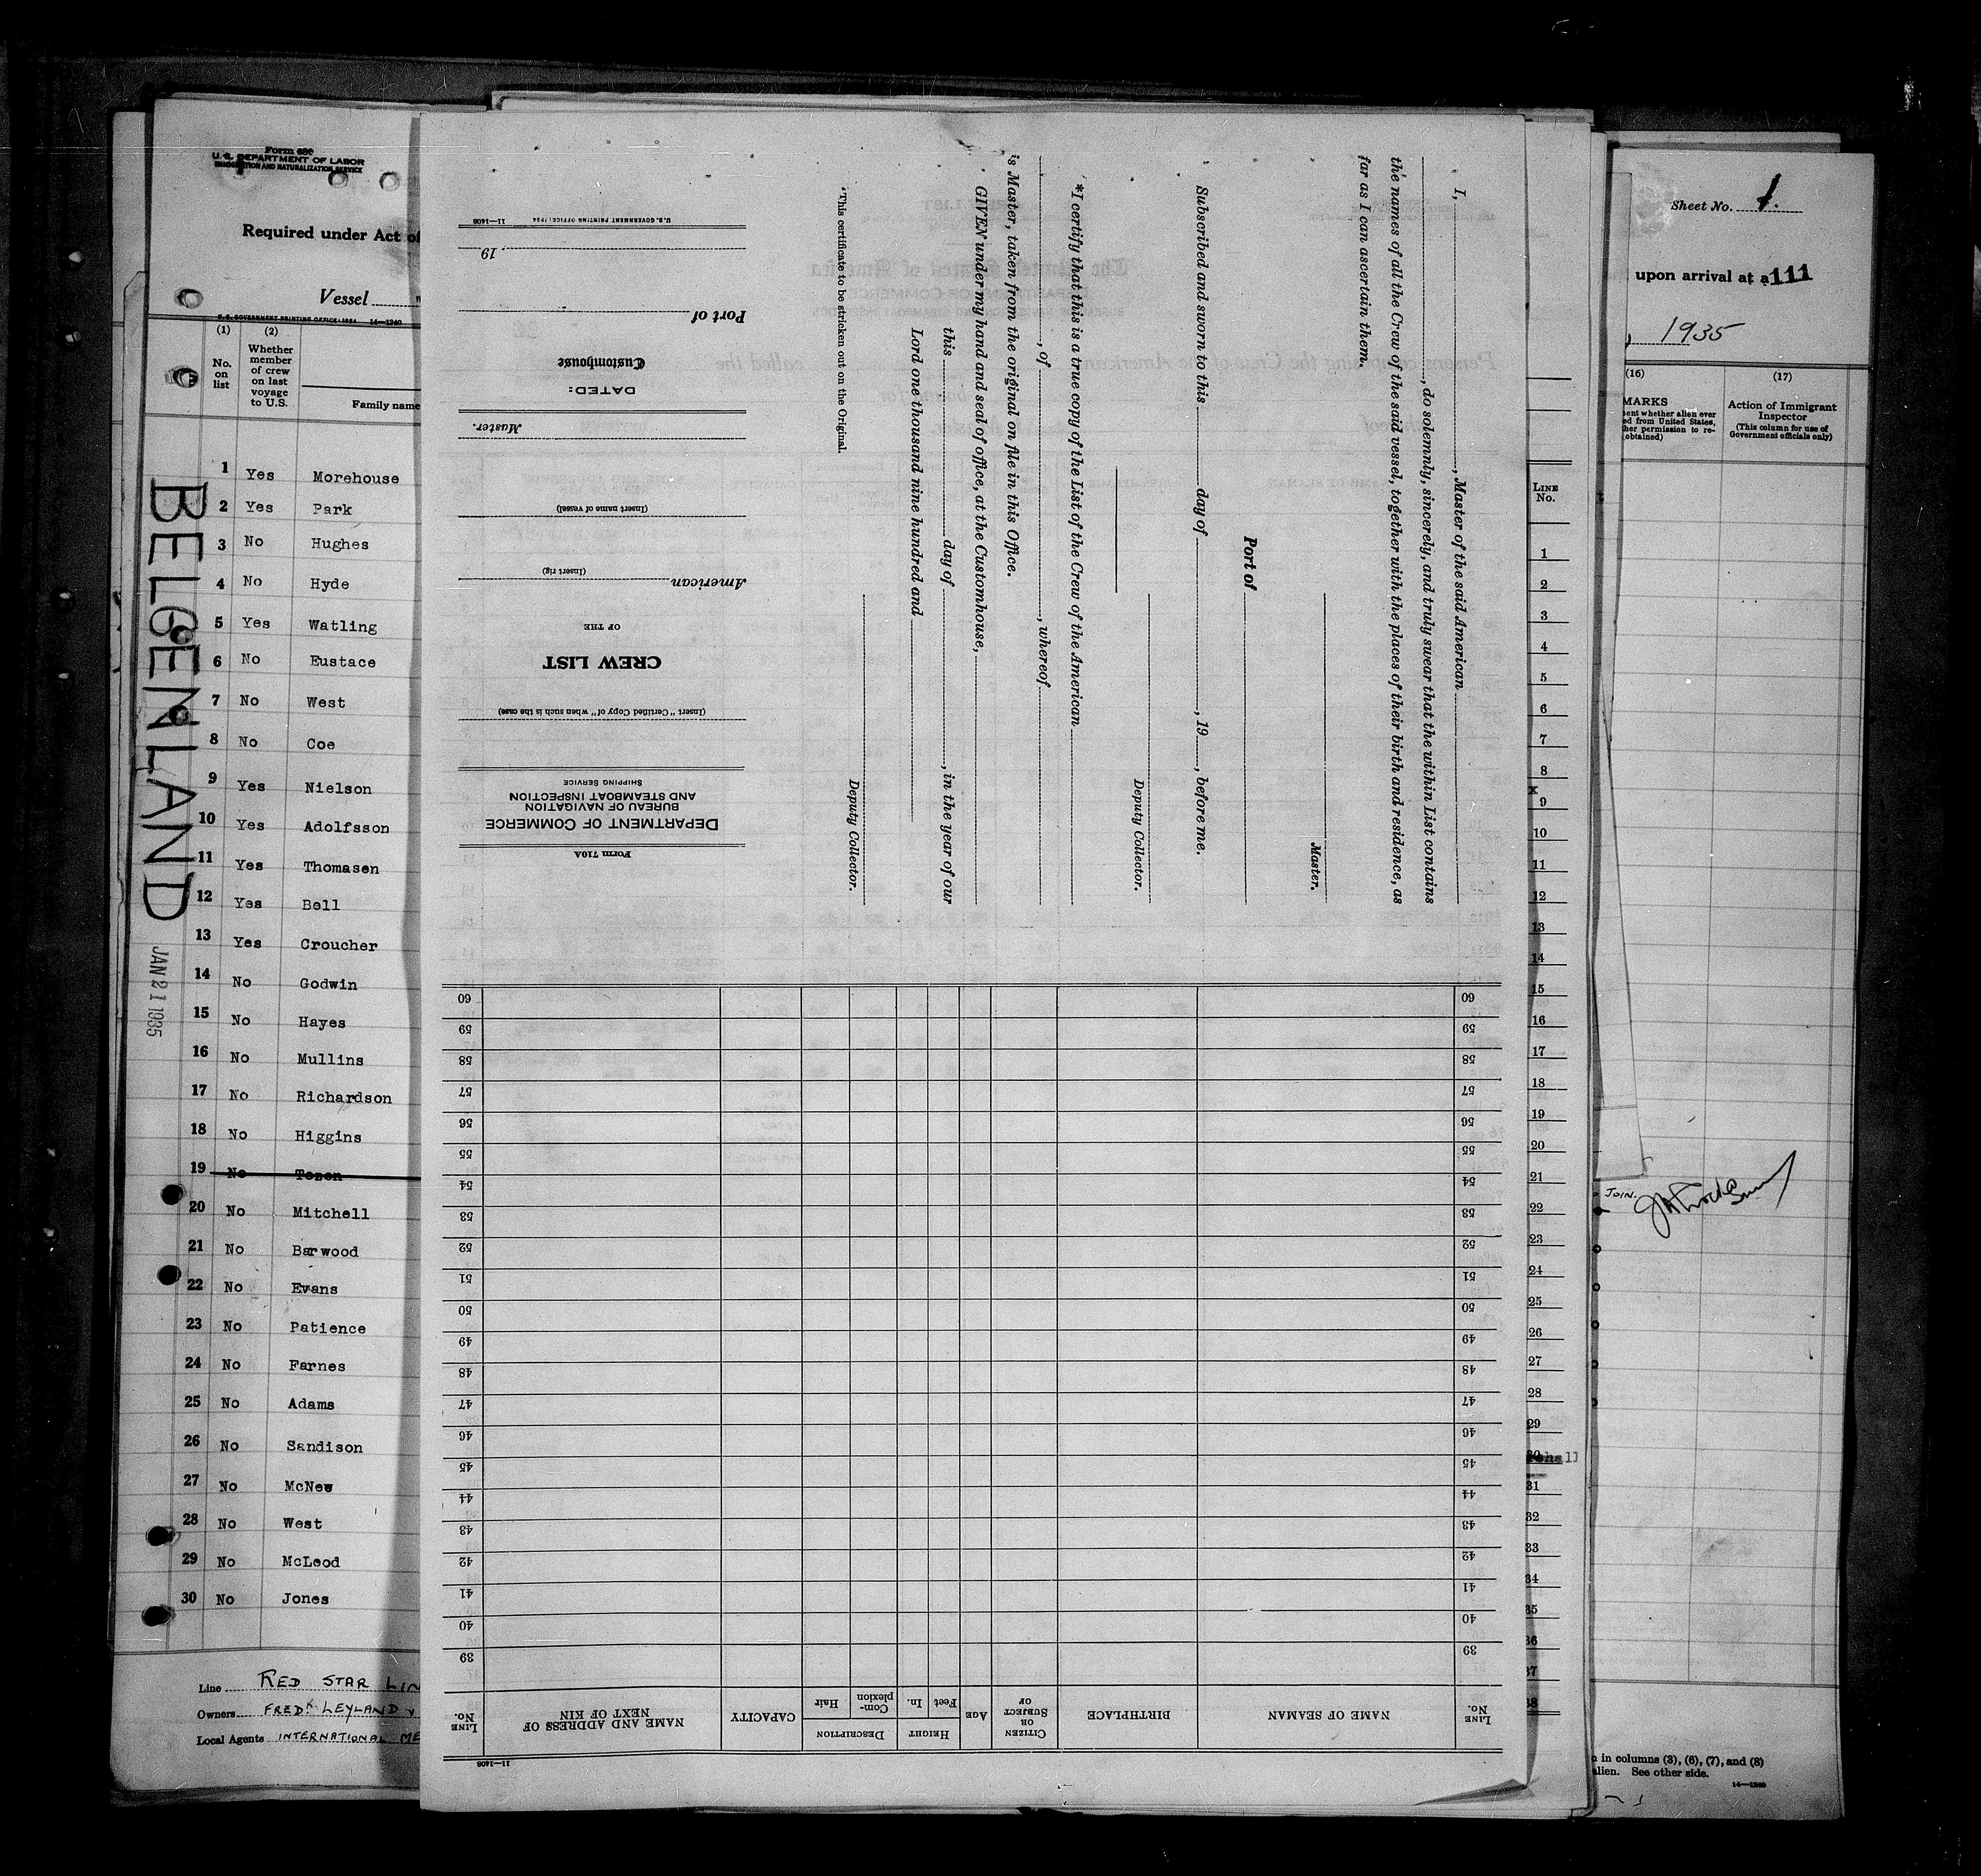 Form 680
U. S. DEPARTMENT OF LABOR
IMMIGRATION AND NATURALIZATION SERVICE
Required under Act of
Vessel
U. S. GOVERNMENT PRINTING OFFICE: 1934 14—1240
(1) (2)
No. on list
Whether member of crew on last voyage to U.S.
Family name
1 Yes Morehouse
2 Yes Park
3 No Hughes
4 No Hyde
5 Yes Watling
6 No Eustace
7 No West
8 No Coe
9 Yes Nielson
10 Yes Adolfsson
11 Yes Thomasen
12 Yes Bell
13 Yes Croucher
14 No Godwin
15 No Hayes
16 No Mullins
17 No Richardson
18 No Higgins
19 No
20 No Mitchell
21 No Barwood
22 No Evans
23 No Patience
24 No Farnes
25 No Adams
26 No Sandison
27 No McNew
28 No West
29 No McLeod
30 No Jones
BELGENLAND
JAN 21 1935
Line RED STAR LIN
Owners FREDK LEYLAND
Local Agents INTERNATIONAL ME
I, , Master of the said American
, do solemnly, sincerely, and truly swear that the within List contains
the names of all the Crew of the said vessel, together with the places of their birth and residence, as
far as I can ascertain them.
Master.
Port of
Subscribed and sworn to this day of , 19 , before me.
Deputy Collector.
*I certify that this is a true copy of the List of the Crew of the American
, of , whereof
is Master, taken from the original on file in this Office.
GIVEN under my hand and seal of office, at the Customhouse,
this day of , in the year of our
Lord one thousand nine hundred and
Deputy Collector.
*This certificate to be stricken out on the Original.
Form 710A
DEPARTMENT OF COMMERCE
BUREAU OF NAVIGATION
AND STEAMBOAT INSPECTION
SHIPPING SERVICE
(Insert "Certified Copy of" when such is the case)
CREW LIST
OF THE
American
(Insert rig)
(Insert name of vessel)
Master.
DATED:
Customhouse
Port of
, 19
U. S. GOVERNMENT PRINTING OFFICE: 1934 11—1408
11—1408
LINE No.
NAME OF SEAMAN
BIRTHPLACE
CITIZEN OR SUBJECT OF
AGE
HEIGHT
Feet In.
DESCRIPTION
Complexion Hair
CAPACITY
NAME AND ADDRESS OF NEXT OF KIN
LINE No.
39 39
40 40
41 41
42 42
43 43
44 44
45 45
46 46
47 47
48 48
49 49
50 50
51 51
52 52
53 53
54 54
55 55
56 56
57 57
58 58
59 59
60 60
LINE No.
1
2
3
4
5
6
7
8
x
9
10
11
12
13
14
15
16
17
18
19
20
21
22
23
24
25
26
27
28
29
30
31
32
33
34
35
36
37
38
Sheet No. 1.
upon arrival at a 111
, 1935
(16) (17)
MARKS
ent whether alien ever
ed from United States,
her permission to re-
obtained)
Action of Immigrant Inspector
(This column for use of Government officials only)
JOIN.
n in columns (3), (6), (7), and (8)
alien. See other side.
14—1240